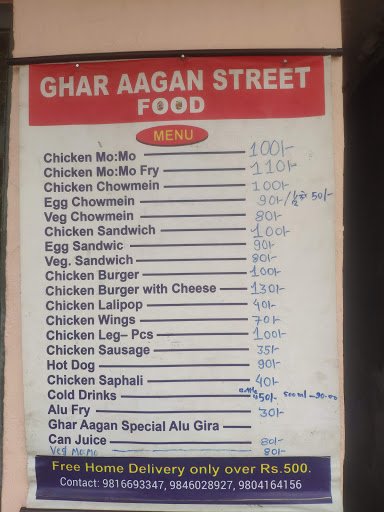 GHAR AAGAN STREET
FOOD
MENU
Chicken Mo:Mo 100/-
Chicken Mo:Mo Fry 110/-
Chicken Chowmein 100/-
Egg Chowmein 90/-/½ 50/-
Veg Chowmein 80/-
Chicken Sandwich 100/-
Egg Sandwic 90/-
Veg. Sandwich 80/-
Chicken Burger 100/-
Chicken Burger with Cheese 130/-
Chicken Lalipop 40/-
Chicken Wings 70/-
Chicken Leg– Pcs 100/-
Chicken Sausage 35/-
Hot Dog 90/-
Chicken Saphali 40/-
Cold Drinks 50/- 500ml -90.00
Alu Fry 30/-
Ghar Aagan Special Alu Gira
Can Juice 80/-
Veg Mo:Mo 80/-
Free Home Delivery only over Rs.500.
Contact: 9816693347, 9846028927, 9804164156